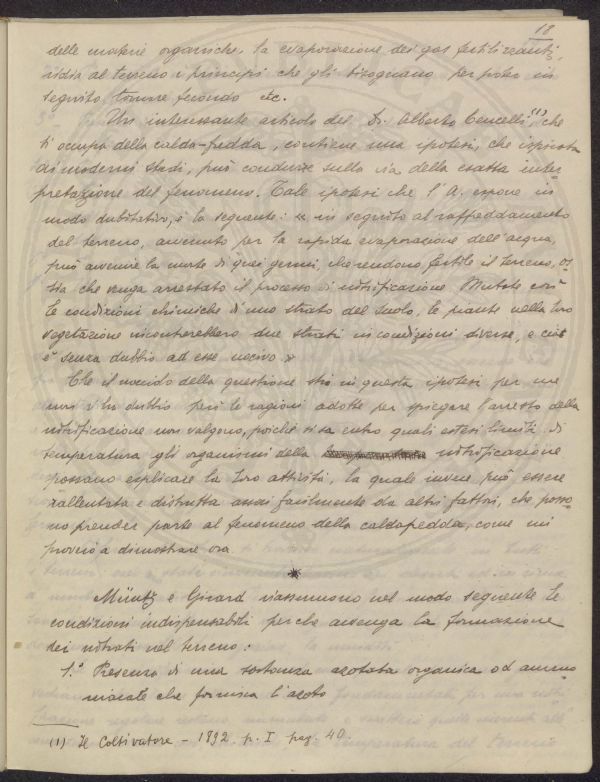 18
delle materie organiche, la evaporazione dei gas fertilizzanti,
ridia al terreno i principi che gli bisognano per poter in
seguito tornare fecondo etc.
Un interessante articolo del Dr. Alberto Cencelli (1), che
si occupa della calda-fredda, contiene una ipotesi, che ispirata
ai moderni studi, può condurre sulla via della esatta inter
pretazione del fenomeno. Tale ipotesi che l'A. espone in
modo dubitativo, è la seguente: « in seguito al raffreddamento
del terreno, avvenuto per la rapida evaporazione dell'acqua,
può avvenire la morte di quei germi, che rendono fertile il terreno, os-
sia che venga arrestato il processo di nitrificazione. Mutate così
le condizioni chimiche d'uno strato del suolo, le piante nella loro
vegetazione incontrerebbero due strati in condizioni diverse, e ciò
è senza dubbio ad esse nocivo. »
Che il nocciolo della questione stia in questa ipotesi per me
non v'ha dubbio però le ragioni adotte per spiegare l'arresto della
nitrificazione non valgono, poiché si sa entro quali estesi limiti di
temperatura gli organismi della nitrificazione
possano esplicare la loro attività, la quale invece può essere
rallentata e distrutta assai facilmente da altri fattori, che posso-
no prendere parte al fenomeno della caldafredda, come mi
proverò a dimostrare ora.
*
Müntz e Girard riassumono nel modo seguente le
condizioni indispensabili perchè avvenga la formazione
dei nitrati nel terreno:
1.° Presenza di una sostanza azotata organica od ammo
niacale che fornisca l'azoto
(1) Il Coltivatore - 1892. p. I pag. 40.